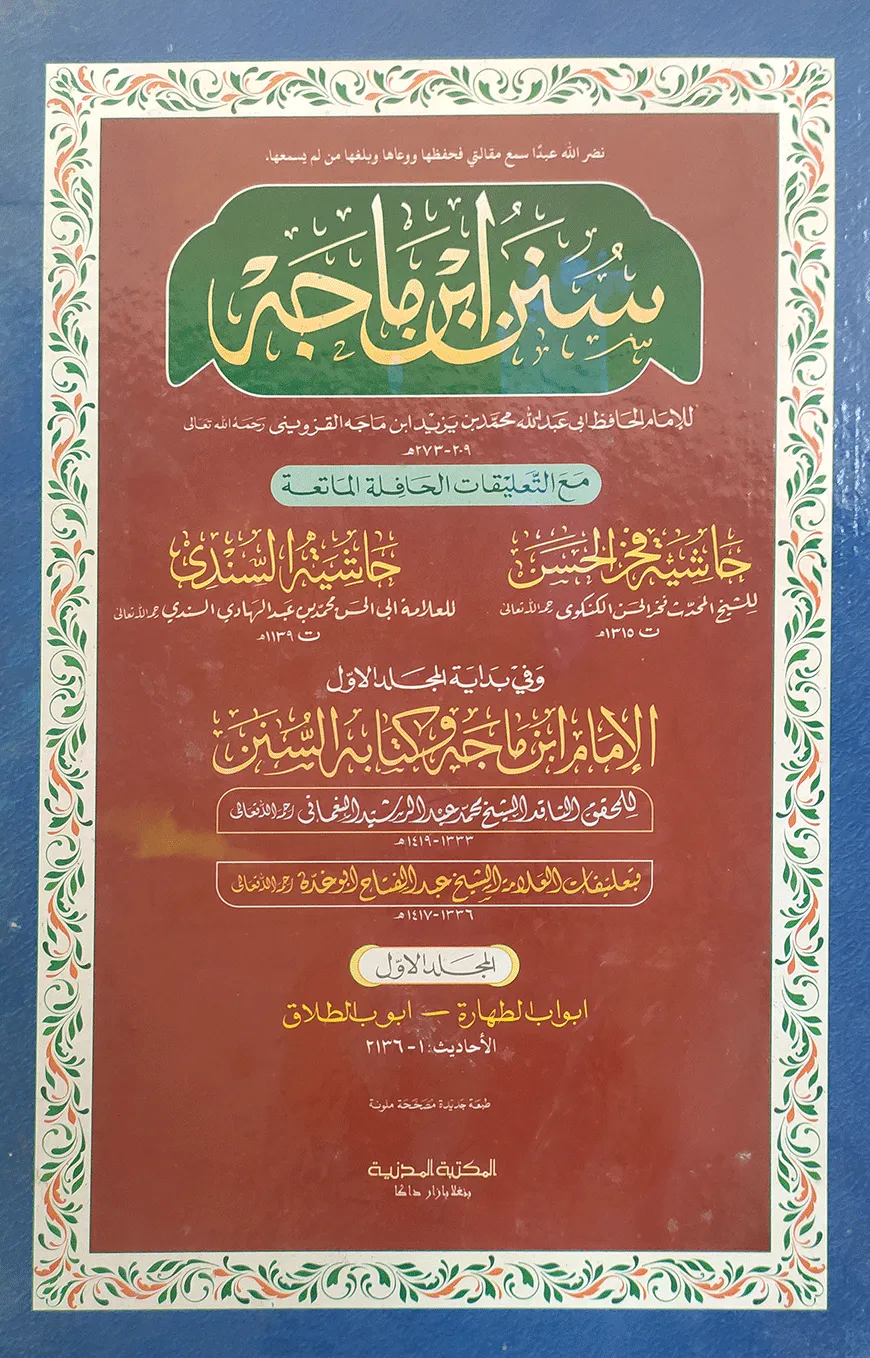 نضر الله عبدًا سمع مقالتي فحفظها ووعاها وبلغها من لم يسمعها.
سُنَن ابن ماجَه
للإمام الحافظ ابی عبد الله محمّد بن يزيد ابن ماجه القزوينی رحمه الله تعالی
٢٠٩-٢٧٣هـ
مَعَ التَّعليقات الحَافِلة الماتعة
حَاشِيَة فخر الحَسَن
للشيخ المحدّث فخر الحسن الكنكوی رحمہ الله تعالیٰ
ت ١٣١٥هـ
حَاشِيَة السِّنْدِي
للعلامة ابی الحسن محمد بن عبد الهادي السندي رحمہ الله تعالیٰ
ت ١١٣٩هـ
وَفي بدَاية المجلد الاوّل
الإمَام ابن مَاجَه وكتابه السُّنَن
للمحقق الناقد الشيخ محمد عبد الرشيد النعمانی رحمہ الله تعالیٰ
١٣٣٣-١٤١٩هـ
بتعليقات العلامة الشيخ عبد الفتاح ابو غدّة رحمہ الله تعالیٰ
١٣٣٦-١٤١٧هـ
المجَلد الاوّل
ابواب الطهارة – ابوب الطلاق
الأحاديث: ١-٢١٣٦
طبعَة جَديْدة مُصَحّحَة ملونة
المكتبة المدنية
بنغلا بازار داكا